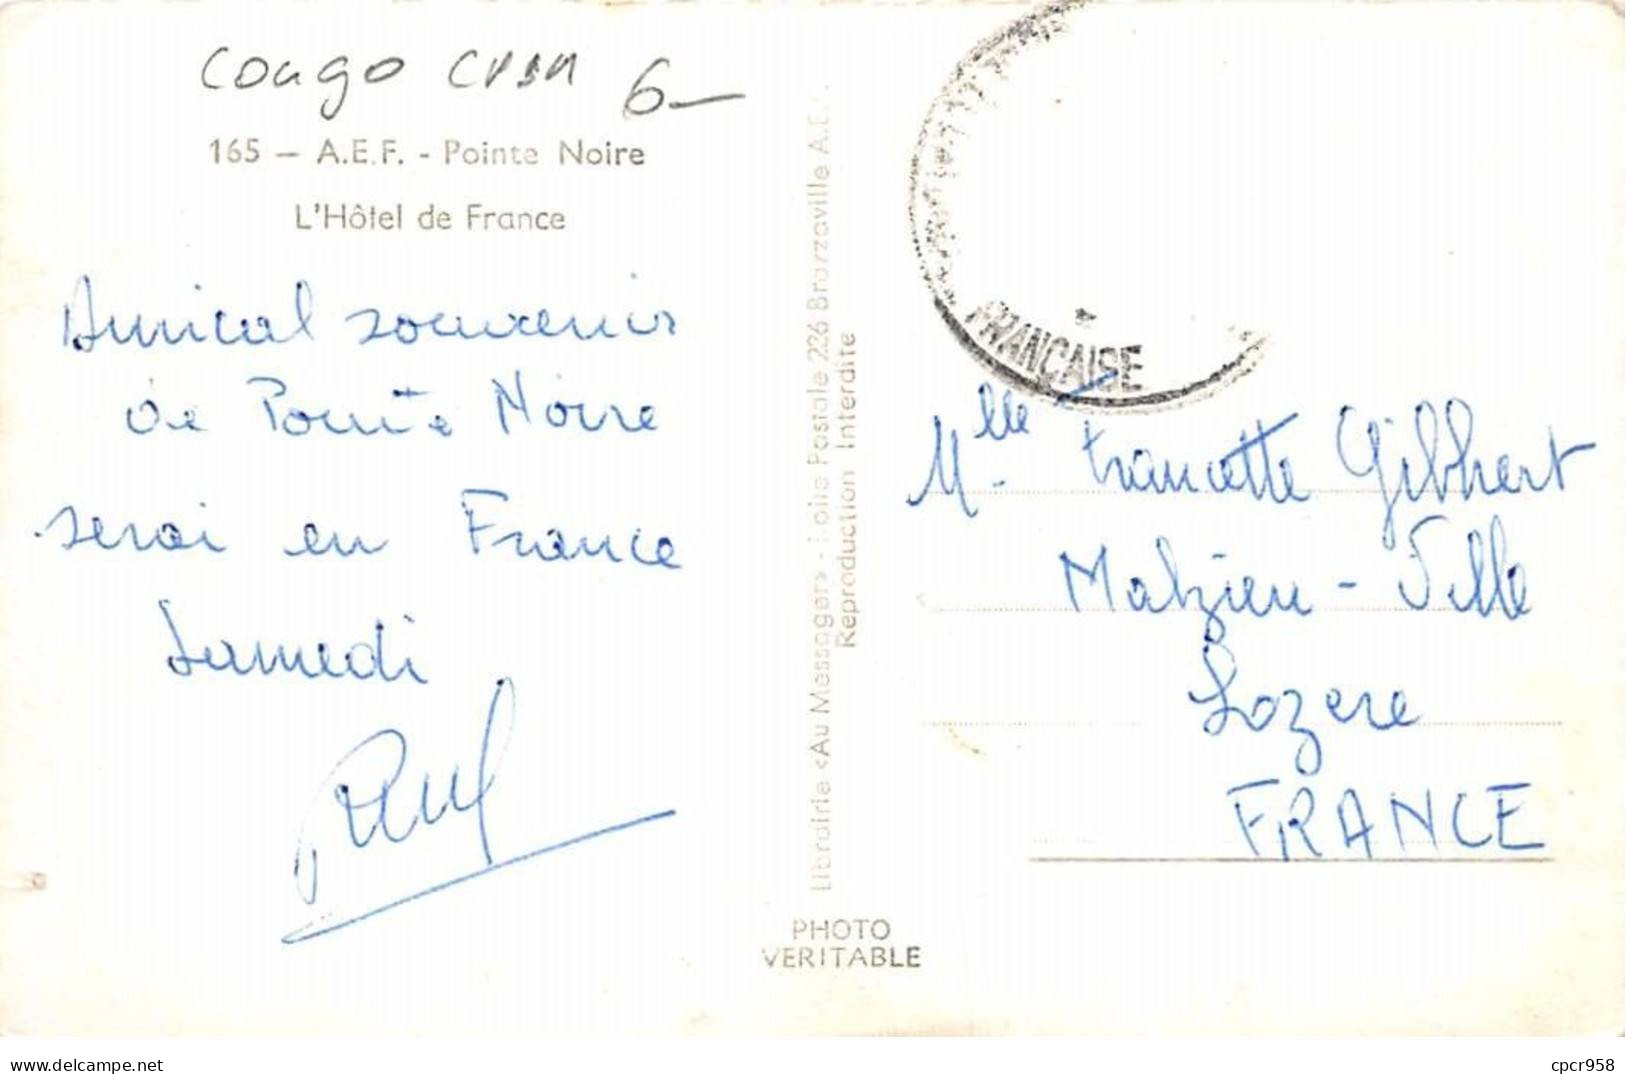 Congo CPSM 6-
165 — A.E.F. - Pointe Noire
L'Hôtel de France
Amical souvenir
de Pointe Noire
serai en France
Samedi
Paul
Librairie «Au Messager» - Boite Postale 226 Brazzaville A.E.F.
Reproduction Interdite
PHOTO
VERITABLE
FRANÇAISE
Mlle Francette Gibhert
Malzieu - Ville
Lozere
FRANCE
www.delcampe.net
cpcr958